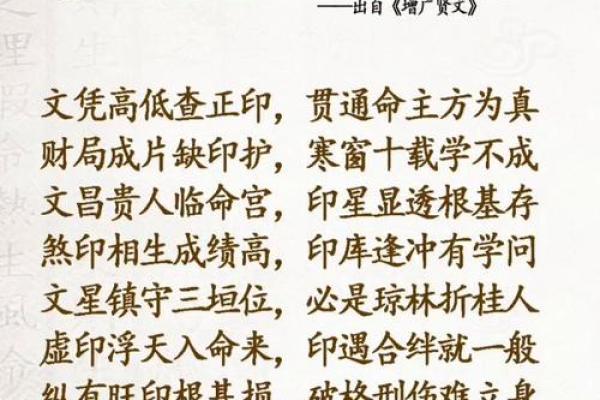 ——出自《增广贤文》
文凭高低查正印，贯通命主方为真
财局成片缺印护，寒窗十载学不成
文昌贵人临命宫，印星显透根基存
煞印相生成绩高，印库逢冲有学问
文星镇守三垣位，必是琼林折桂人
虚印浮天入命来，印遇合绊就一般
纵有旺印根基损，破格刑伤难立身